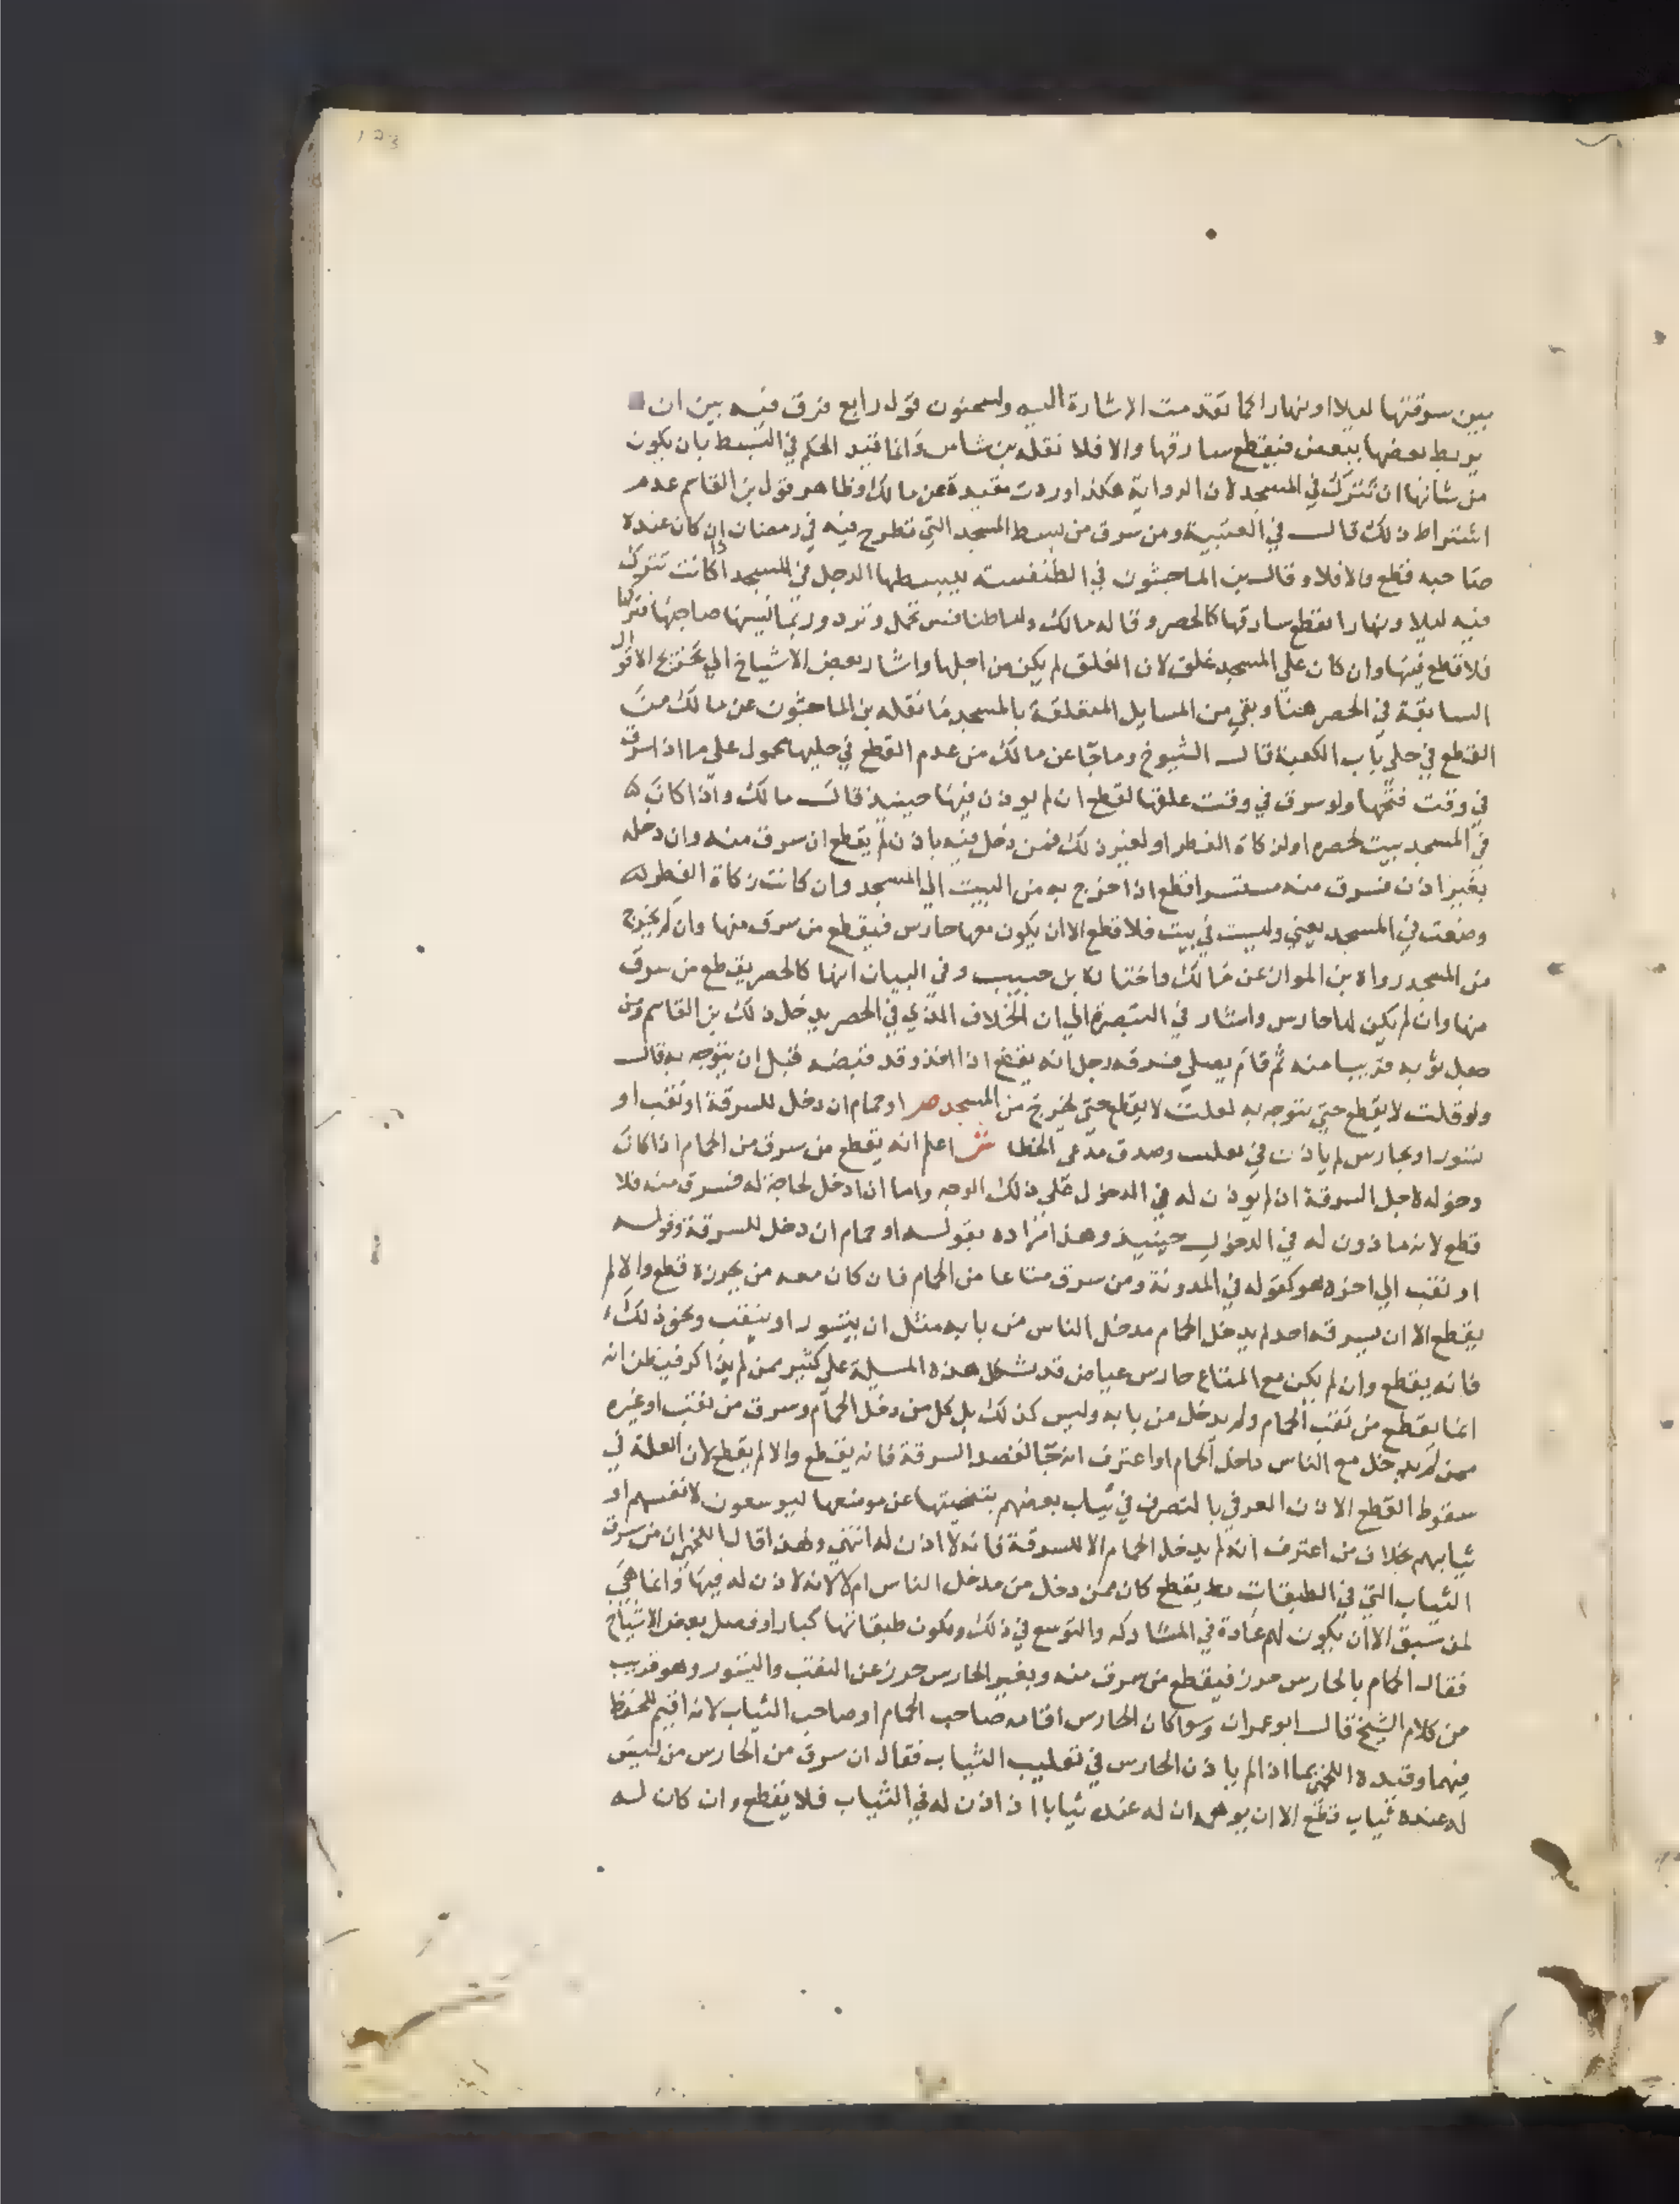 123
بين سرقتها ليلا او نهارا كما تقدمت الاشارة اليه ولسحنون قول رابع فرق فيه بين ان
يربط بعضها ببعض فيقطع سارقها والا فلا نقله بن شاس وانما قيد الحكم في البسط بان يكون
من شانها ان تترك في المسجد لان الرواية هكذا وردت مقيدة عن مالك وظاهر قول بن القاسم عدم
اشتراط ذلك قال في العتبية ومن سرق من بسط المسجد التي تطرح فيه في رمضان ان كان عنده
صاحبه قطع والا فلا وقال بن الماجشون في الطنفسة يبسطها الرجل في المسجد اذا كانت تترك
فيه ليلا ونهارا يقطع سارقها كالحصر وقاله مالك واما طنافس تحمل وترد وربما نسيها صاحبها فتركها
فلا قطع فيها وان كان علي المسجد غلق لان الغلق لم يكن من اجلها واشار بعض الاشياخ الي تخريج الاقوال
السابقة في الحصر هنا وبقي من المسايل المتعلقة بالمسجد ما نقله بن الماجشون عن مالك من
القطع في حلي باب الكعبة قال الشيوخ وما جا عن مالك من عدم القطع في حليها محمول علي ما اذا سرق
في وقت فتحها ولو سرق في وقت غلقها لقطع ان لم يوذن فيها حينيذ قال مالك واذا كان
في المسجد بيت لحصره او لزكاة الفطر او لغير ذلك فمن دخل فيه باذن لم يقطع ان سرق منه وان دخله
بغير اذن فسرق منه مستسرا قطع اذا خرج به من البيت الي المسجد وان كانت زكاة الفطر
وضعت في المسجد يعني وليست في بيت فلا قطع الا ان يكون معها حارس فيقطع من سرق منها وان لم يخرج
من المسجد رواه بن المواز عن مالك واختاره بن حبيب وفي البيان انها كالحصر يقطع من سرق
منها وان لم يكن لها حارس واشار في التبصرة الي ان الخلاف الذي في الحصر يدخل ذلك بن القاسم ومن
جعل ثوبه قريبا منه ثم قام يصلي فسرقه رجل انه يقطع اذا اخذ وقد قبضه قبل ان يتوجه به قال
ولو قلت لا يقطع حتي يتوجه به لقلت لا يقطع حتي يخرج من المسجد ص او حمام ان دخل للسرقة او نقب او
تسور او بحارس لم ياذن في تقليب وصدق مدعي الخطا ش اعلم انه يقطع من سرق من الحمام اذا كان
دخوله لاجل السرقة ان لم يوذن له في الدخول علي ذلك الوجه واما ان دخل لحاجة له فسرق منه فلا
قطع لانه ماذون له في الدخول حينيذ وهذا مراده بقوله او حمام ان دخل للسرقة وقوله
او نقب الي اخره هو كقوله في المدونة ومن سرق متاعا من الحمام فان كان معه من يحرزه قطع والا لم
يقطع الا ان يسرقه احد لم يدخل الحمام مدخل الناس من بابه مثل ان يتسور او ينقب ونحو ذلك
فانه يقطع وان لم يكن مع المتاع حارس عياض قد تشكل هذه المسيلة علي كثير ممن لم يذاكر فيظن انه
انما يقطع من نقب الحمام ولم يدخل من بابه وليس كذلك بل كل من دخل الحمام وسرق من نقب او غيره
ممن لم يدخل مع الناس داخل الحمام او اعترف انه جا لقصد السرقة فانه يقطع والا لم يقطع لان العلة في
سقوط القطع الاذن العرفي بالتصرف في ثياب بعضهم بتنحيتها عن موضعها ليوسعون لانفسهم او
ثيابهم بخلاف من اعترف انه لم يدخل الحمام الا للسرقة فانه لا اذن له انتهي ولهذا قال اللخمي ان من سرق
الثياب التي في الطيقات يقطع كان ممن دخل من مدخل الناس ام لا لانه لا اذن له فيها وانما هي
لمن سبق الا ان يكون لهم عادة في المشاركة والتوسع في ذلك وتكون طيقانها كبارا وفصل بعض الاشياخ
فقال الحمام بالحارس حرز فيقطع من سرق منه وبغير الحارس حرز عن النقب والتسور وهو قريب
من كلام الشيخ قال ابو عمران وسوا كان الحارس اقامه صاحب الحمام او صاحب الثياب لانه اقيم للحفظ
فيهما وقيده اللخمي بما اذا لم ياذن الحارس في تقليب الثياب فقال ان سرق من الحارس من ليس
له عنده ثياب قطع الا ان يوهمه ان له عنده ثيابا اذ اذن له في الثياب فلا يقطع وان كان له